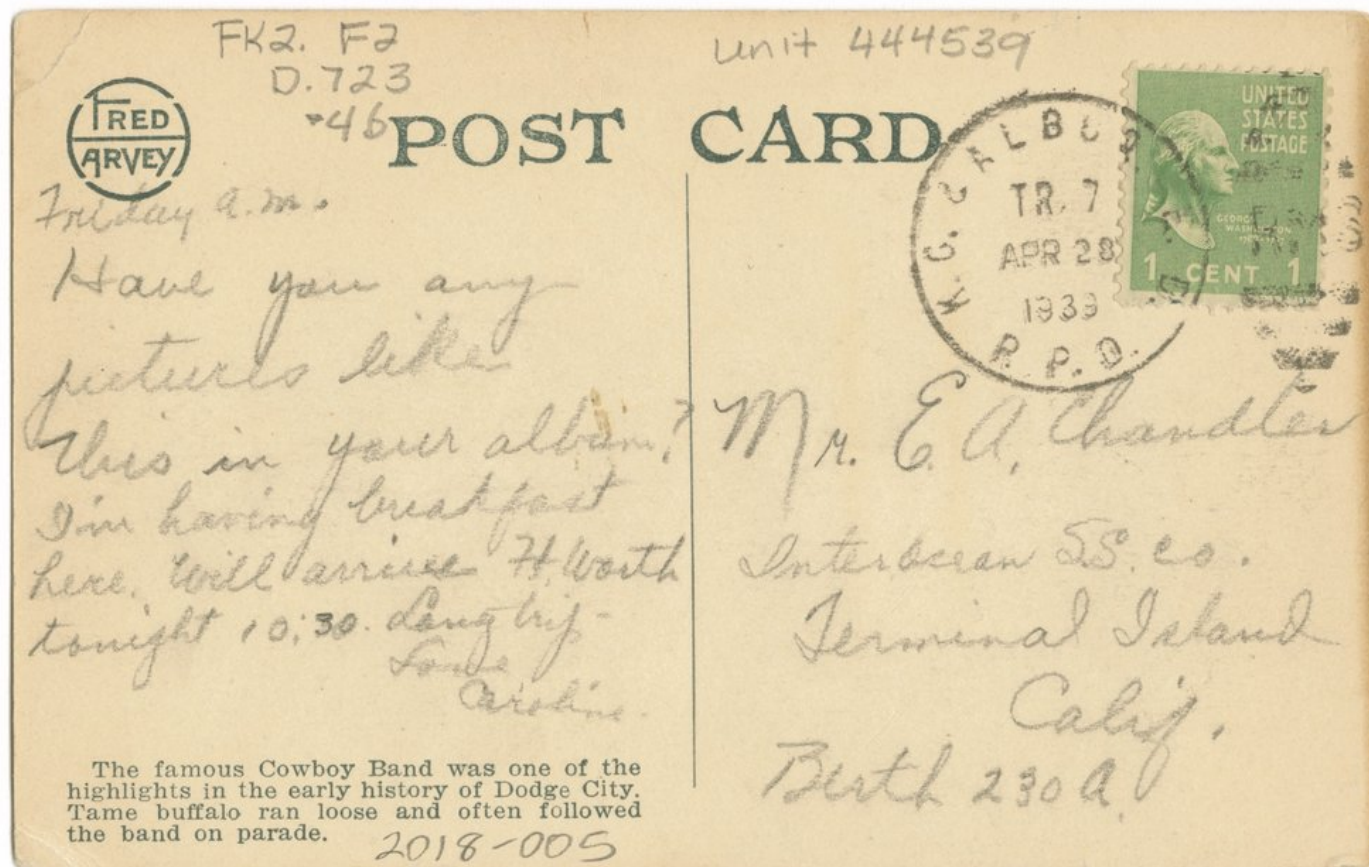 FK2. F2
D.723
•46
Unit 444539
FRED
HARVEY
POST CARD
K.C. & ALBUQ
TR. 7
APR 28
1939
R.P.O.
UNITED
STATES
POSTAGE
GEORGE
WASHINGTON
1 CENT 1
Friday a.m.
Have you any
pictures like
this in your album?
I'm having breakfast
here. Will arrive Ft. Worth
tonight 10:30. Long trip -
Love
Caroline.
Mr. E. A. Chandler
Interocean S.S. Co.
Terminal Island
Calif.
Berth 230 A.
The famous Cowboy Band was one of the
highlights in the early history of Dodge City.
Tame buffalo ran loose and often followed
the band on parade.
2018-005